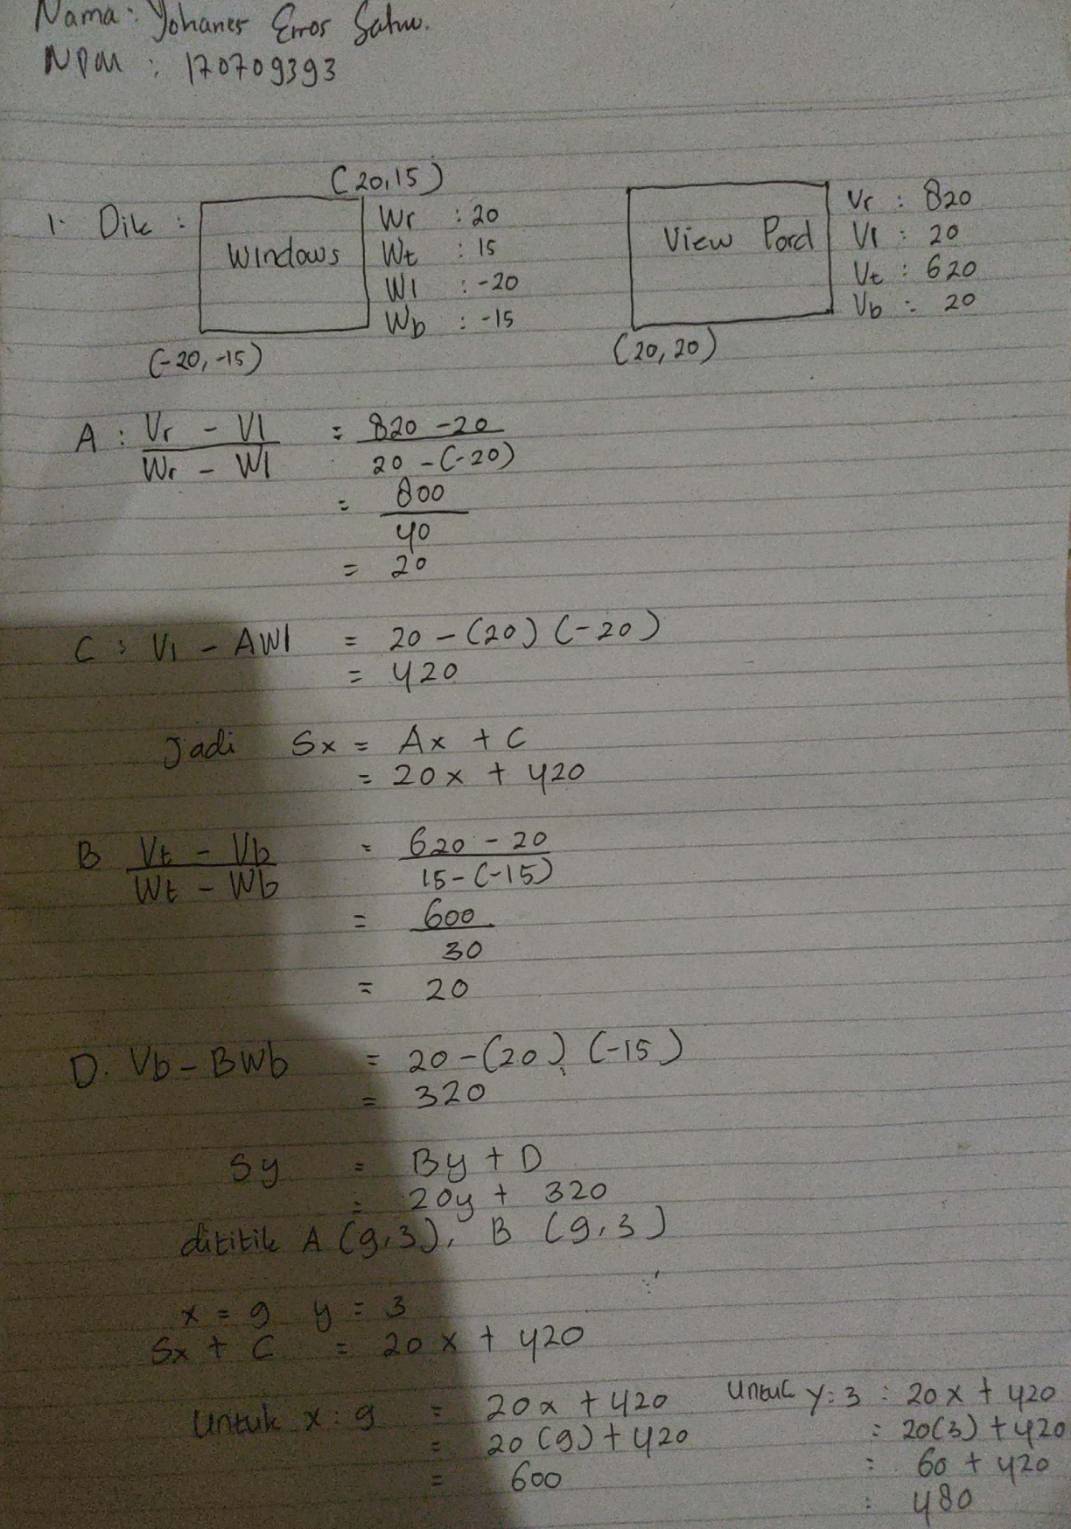 Nama : Yohanes Erros Satw.
NPM : 170709393
(20,15)
1. Dik :
Windows
Wr : 20
Wt : 15
Wl : -20
Wb : -15
(-20, -15)
View Pord
Vr : 820
Vl : 20
Vt : 620
Vb : 20
(20, 20)
A : Vr - Vl / Wr - Wl = 820 - 20 / 20 - (-20)
= 800 / 40
= 20
C : Vl - AWl = 20 - (20) (-20)
= 420
Jadi Sx = Ax + C
= 20x + 420
B Vt - Vb / Wt - Wb = 620 - 20 / 15 - (-15)
= 600 / 30
= 20
D. Vb - BWb = 20 - (20) (-15)
= 320
Sy = By + D
= 20y + 320
dititik A (9,3), B (9,3)
x = 9 y = 3
Sx + C = 20x + 420
Untuk x : 9 = 20x + 420
= 20(9) + 420
= 600
Untuk y : 3 : 20x + 420
: 20(3) + 420
: 60 + 420
: 480